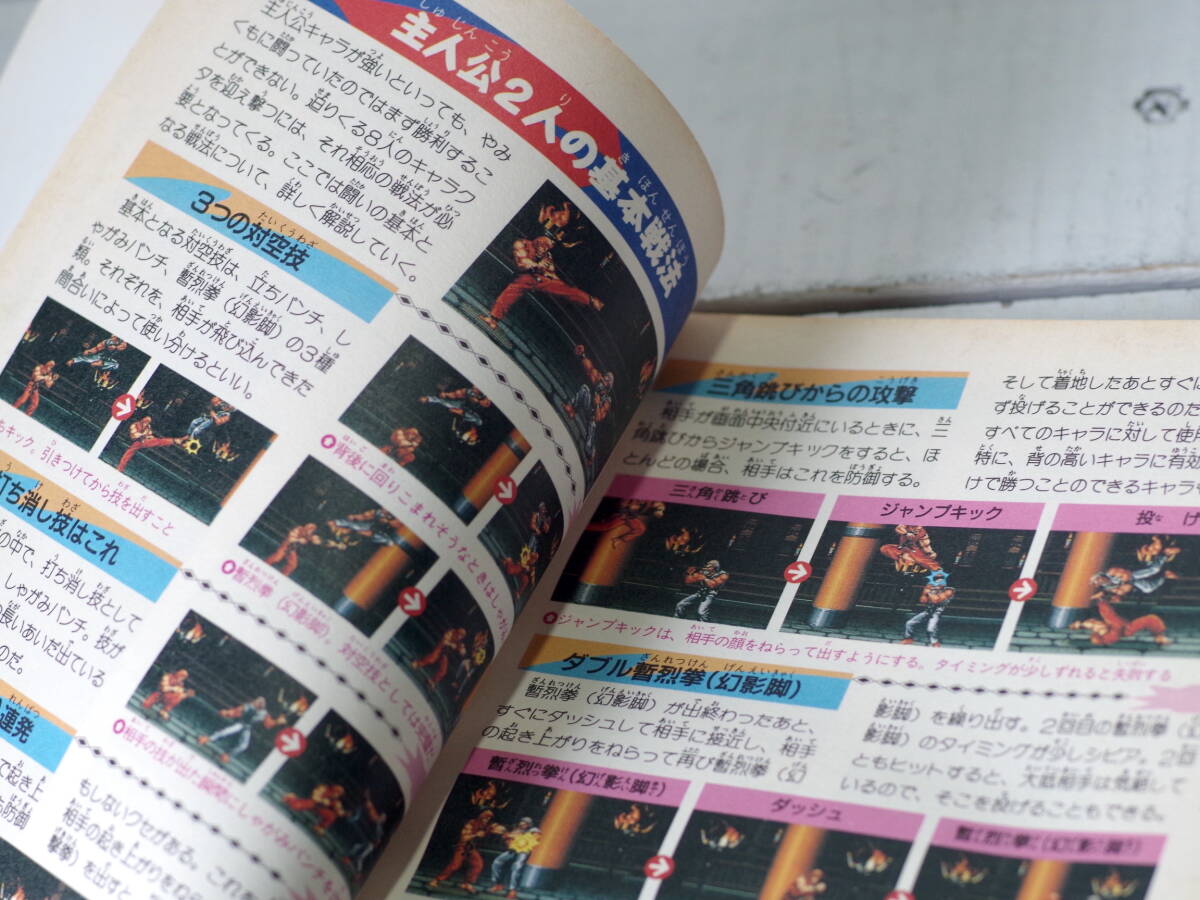 主人公2人の基本戦法
主人公キャラが強いといっても、やみ
くもに闘っていたのではまず勝利するこ
とができない。迫りくる8人のキャラク
タを迎え撃つには、それ相応の戦法が必
要となってくる。ここでは闘いの基本と
なる戦法について、詳しく解説していく。
3つの対空技
基本となる対空技は、立ちパンチ、し
ゃがみパンチ、暫烈拳（幻影脚）の3種
類。それぞれを、相手が飛び込んできた
間合いによって使い分けるといい。
キック。引きつけてから技を出すこと
背後に回りこまれそうなときはしゃがみ
暫烈拳（幻影脚）。対空技としては
打ち消し技はこれ
の中で、打ち消し技として
しゃがみパンチ。技が
長いあいだ出ている
のだ。
相手の技が出た瞬間にしゃがみパンチを
連発
で起き上
も防御
もしないクセがある。これを
相手の起き上がりをねら
撃拳）を出すと
三角跳びからの攻撃
相手が画面中央付近にいるときに、三
角跳びからジャンプキックをすると、ほ
とんどの場合、相手はこれを防御する。
そして着地したあとすぐに
ず投げることができるのだ
すべてのキャラに対して使用
特に、背の高いキャラに有効
けで勝つことのできるキャラも
三角跳び
ジャンプキック
投げ
ジャンプキックは、相手の顔をねらって出すようにする。タイミングが少しずれると失敗する
ダブル暫烈拳（幻影脚）
暫烈拳（幻影脚）が出終わったあと、
すぐにダッシュして相手に接近し、相手
の起き上がりをねらって再び暫烈拳（幻
影脚）を繰り出す。2回目の暫烈拳（幻
影脚）のタイミングが少しシビア。2回
ともヒットすると、大抵相手は気絶して
いるので、そこを投げることもできる。
暫烈拳（幻影脚）
ダッシュ
暫烈拳（幻影脚）